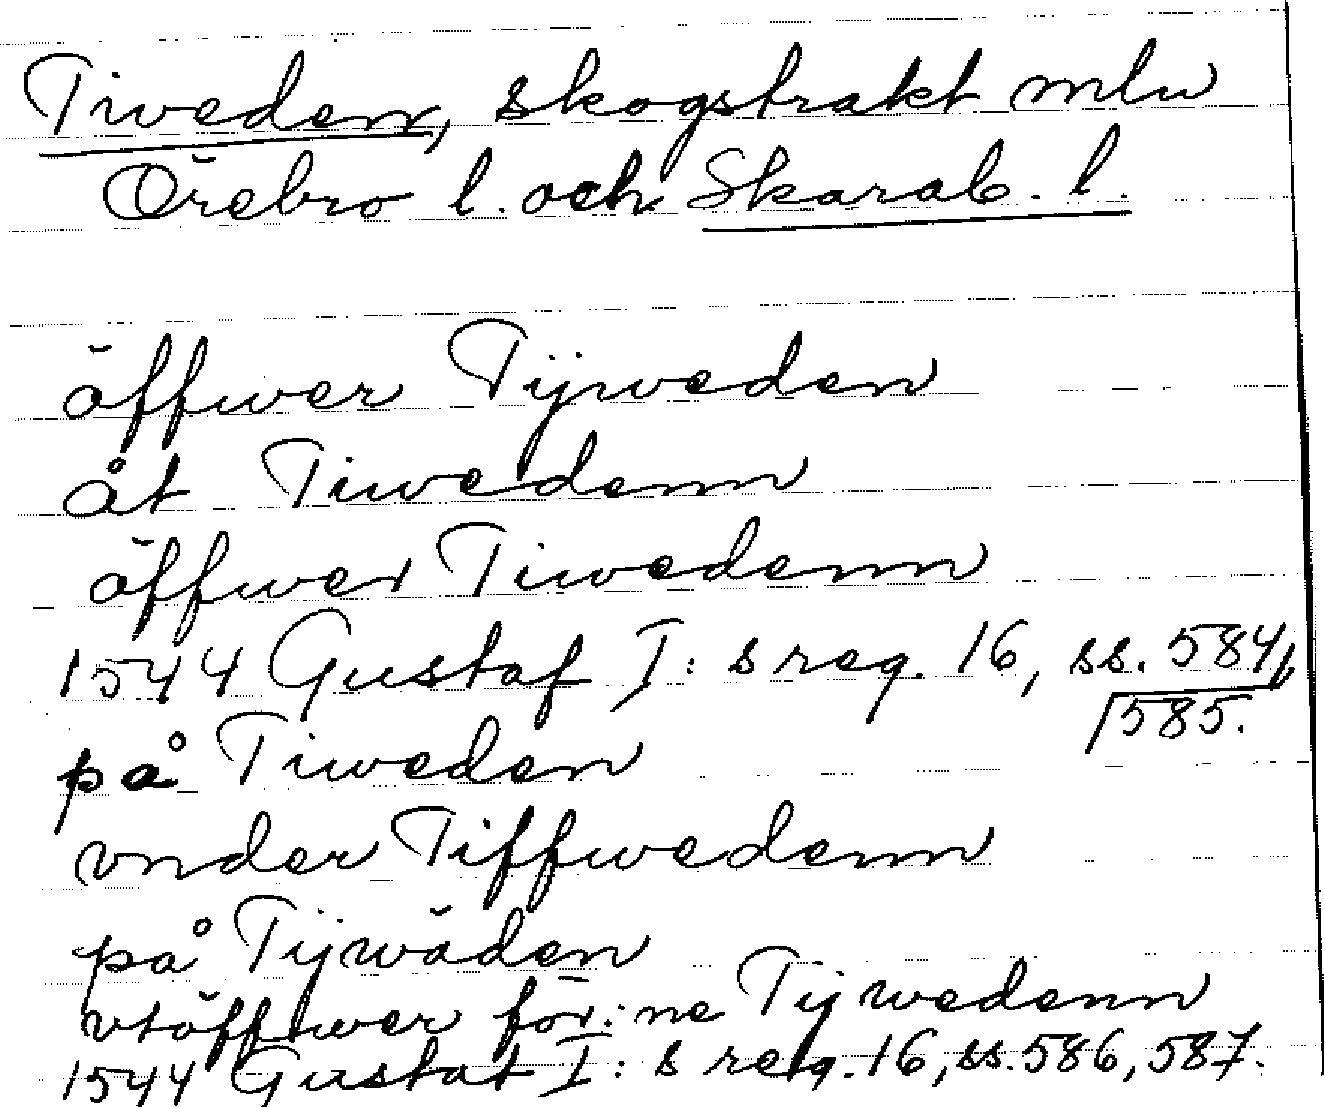 Tiveden, skogstrakt mlu
Örebro l. och Skarab. l.
öffwer Tijweden
åt Tiwedenn
öffwer Tiwedenn
1544 Gustaf I: s reg. 16, ss. 584,
585.
på Tiweden
vnder Tiffwedenn
på Tijwäden
vtöffwer för:ne Tijwedenn
1544 Gustaf I: s reg. 16, ss. 586, 587.